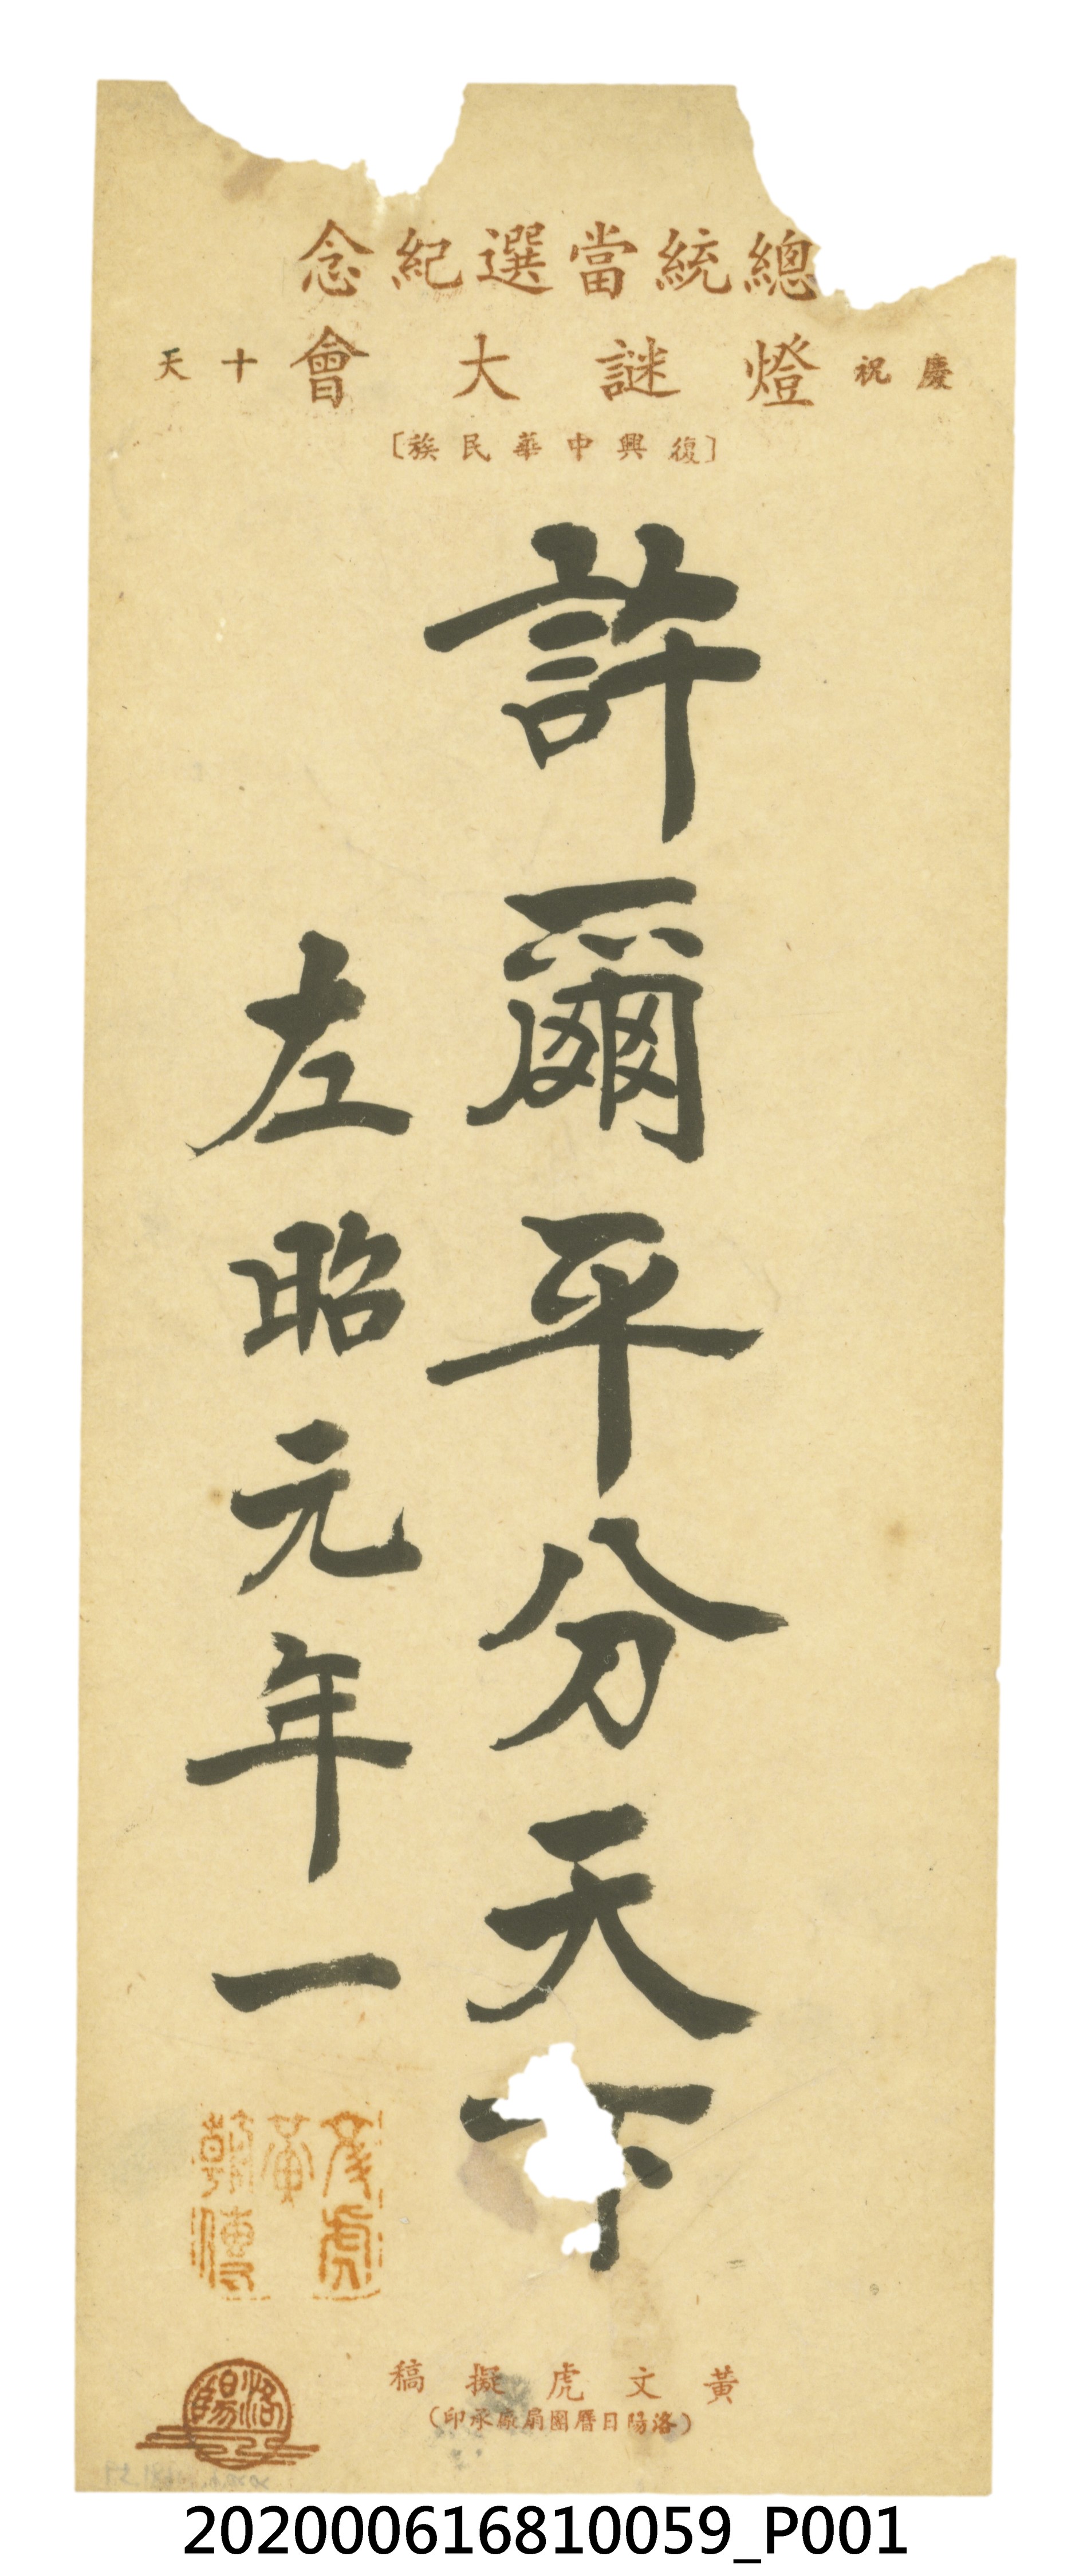 總統當選紀念
慶祝 燈謎大會 十天
〔復興中華民族〕
許爾平分天下
左昭元年一
文虎
黃
翰傳
黃文虎擬稿
(洛陽日曆團扇廠承印)
洛陽
202000616810059_P001